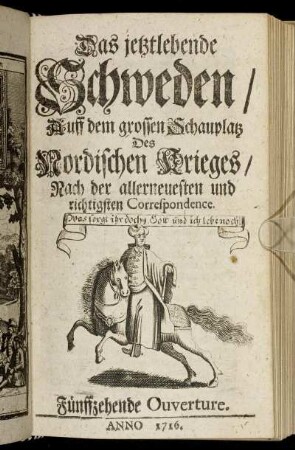 Das jetztlebende
Schweden /
Auff dem grossen Schauplatz
Des
Nordischen Krieges /
Nach der allerneuesten und
richtigsten Correspondence.
Was sorgt ihr doch, Gott und ich leb noch
Fünffzehende Ouverture.
ANNO 1716.